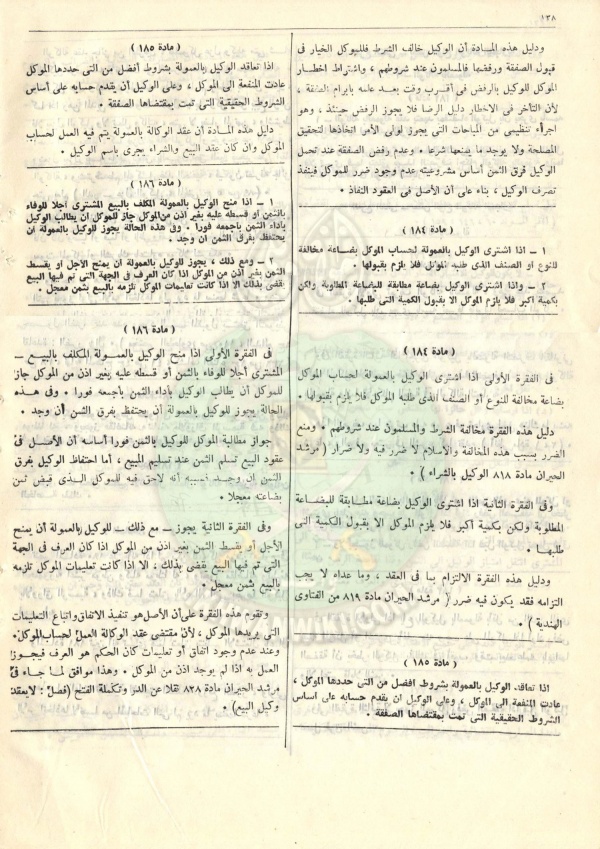 ١٣٨
ودليل هذه المادة أن الوكيل خالف الشرط فللموكل الخيار فى
قبول الصفقة ورفضها فالمسلمون عند شروطهم ، واشتراط اخطار
الموكل للوكيل بالرفض فى أقرب وقت بعد علمه بابرام الصفقة ،
لأن التأخر فى الاخطار دليل الرضا فلا يجوز الرفض حينئذ ، وهو
اجراء تنظيمى من المباحات التى يجوز لولى الأمر اتخاذها لتحقيق
المصلحة ولا يوجد ما يمنعها شرعا . وعدم رفض الصفقة عند تحمل
الوكيل فرق الثمن أساس مشروعيته عدم وجود ضرر للموكل فينفذ
تصرف الوكيل ، بناء على أن الأصل فى العقود النفاذ .
( مادة ١٨٤ )
١ ــ اذا اشترى الوكيل بالعمولة لحساب الموكل بضاعة مخالفة
للنوع أو الصنف الذى طلبه الموكل فلا يلزم بقبولها .
٢ ــ واذا اشترى الوكيل بضاعة مطابقة للبضاعة المطلوبة ولكن
بكمية أكبر فلا يلزم الموكل الا بقبول الكمية التى طلبها .
( مادة ١٨٤ )
فى الفقرة الأولى اذا اشترى الوكيل بالعمولة لحساب الموكل
بضاعة مخالفة للنوع أو الصنف الذى طلبه الموكل فلا يلزم بقبولها .
دليل هذه الفقرة مخالفة الشرط والمسلمون عند شروطهم . ومنع
الضرر بسبب هذه المخالفة والاسلام لا ضرر فيه ولا ضرار ( مرشد
الحيران مادة ٨١٨ الوكيل بالشراء ) .
وفى الفقرة الثانية اذا اشترى الوكيل بضاعة مطابقة للبضاعة
المطلوبة ولكن بكمية أكبر فلا يلزم الموكل الا بقبول الكمية التى
طلبها .
ودليل هذه الفقرة الالتزام بما فى العقد ، وما عداه لا يجب
التزامه فقد يكون فيه ضرر ( مرشد الحيران مادة ٨١٩ من الفتاوى
الهندية ) .
( مادة ١٨٥ )
اذا تعاقد الوكيل بالعمولة بشروط أفضل من التى حددها الموكل ،
عادت المنفعة الى الموكل ، وعلى الوكيل أن يقدم حسابه على أساس
الشروط الحقيقية التى تمت بمقتضاها الصفقة .
( مادة ١٨٥ )
اذا تعاقد الوكيل بالعمولة بشروط أفضل من التى حددها الموكل
عادت المنفعة الى الموكل ، وعلى الوكيل أن يقدم حسابه على أساس
الشروط الحقيقية التى تمت بمقتضاها الصفقة .
دليل هذه المادة أن عقد الوكالة بالعمولة يتم فيه العمل لحساب
الموكل وان كان عقد البيع والشراء يجرى باسم الوكيل .
( مادة ١٨٦ )
١ ــ اذا منح الوكيل بالعمولة المكلف بالبيع المشترى أجلا للوفاء
بالثمن أو قسطه عليه بغير اذن من الموكل جاز للموكل ان يطالب الوكيل
بأداء الثمن بأجمعه فورا . وفى هذه الحالة يجوز للوكيل بالعمولة ان
يحتفظ بفرق الثمن ان وجد .
٢ ــ ومع ذلك ، يجوز للوكيل بالعمولة أن يمنح الأجل أو يقسط
الثمن بغير اذن من الموكل اذا كان العرف فى الجهة التى تم فيها البيع
يقضى بذلك الا اذا كانت تعليمات الموكل تلزمه بالبيع بثمن معجل .
( مادة ١٨٦ )
فى الفقرة الأولى اذا منح الوكيل بالعمولة المكلف بالبيع ــ
المشترى أجلا للوفاء بالثمن أو قسطه عليه بغير اذن من الموكل جاز
للموكل أن يطالب الوكيل بأداء الثمن بأجمعه فورا . وفى هذه
الحالة يجوز للوكيل بالعمولة أن يحتفظ بفرق الثمن أن وجد .
جواز مطالبة الموكل للوكيل بالثمن فورا أساسه أن الأصل فى
عقود البيع تسلم الثمن عند تسليم المبيع ، أما احتفاظ الوكيل بفرق
الثمن ان وجد فسببه أنه لاحق فيه للموكل الذى قبض ثمن
بضاعته معجلا .
وفى الفقرة الثانية يجوز ــ مع ذلك ــ للوكيل بالعمولة أن يمنح
الأجل أو يقسط الثمن بغير اذن من الموكل اذا كان العرف فى الجهة
التى تم فيها البيع يقضى بذلك ، الا اذا كانت تعليمات الموكل تلزمه
بالبيع بثمن معجل .
وتقوم هذه الفقرة على أن الأصل هو تنفيذ الاتفاق واتباع التعليمات
التى يريدها الموكل ، لأن مقتضى عقد الوكالة العمل لحساب الموكل .
وعند عدم وجود اتفاق أو تعليمات كان الحكم هو العرف فيجوز
العمل به اذا لم يوجد اذن من الموكل . وهذا موافق لما جاء فى
مرشد الحيران مادة ٨٣٨ نقلا عن الدر وتكملة الفتح (فصل : لا يعقد
وكيل البيع) .